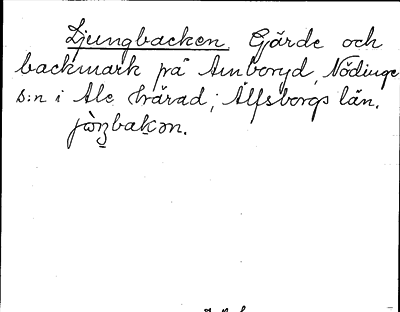 Ljungbacken. Gärde och
backmark på Amboryd, Nödinge
s:n i Ale härad, Älfsborgs län.